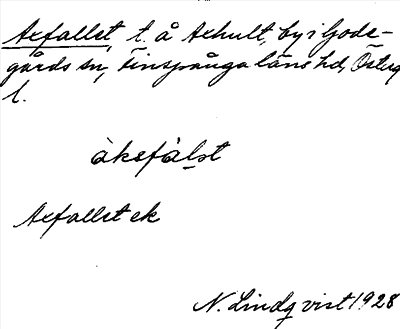 Axfallet, t. å Axhult, by i Gode-
gårds sn, Finspånga läns hd, Österg
l.
àksfàlst
Axfallet ek
N. Lindqvist 1928